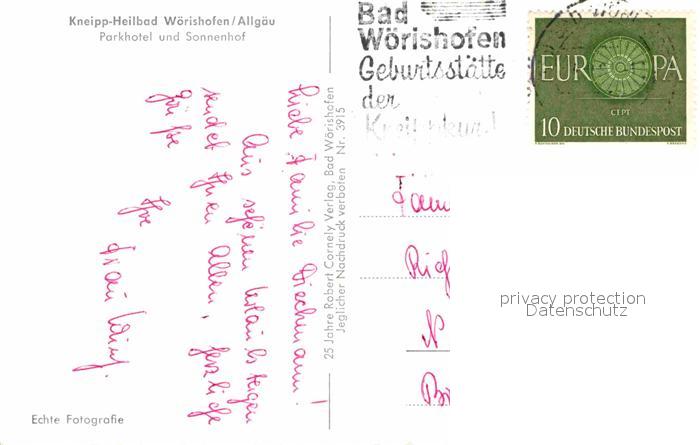 Kneipp-Heilbad Wörishofen/Allgäu
Parkhotel und Sonnenhof
Liebe Familie
Aus schönen Urlaubstagen
sendet Ihnen Allen, herzliche
Grüße
Ihre Frau
Echte Fotografie
25 Jahre Robert Cornely Verlag, Bad Wörishofen
Jeglicher Nachdruck verboten Nr. 3915
Bad
Wörishofen
Geburtsstätte
der
Kneippkur!
EUROPA
CEPT
10 DEUTSCHE BUNDESPOST
Fam
Rich
N
privacy protection
Datenschutz